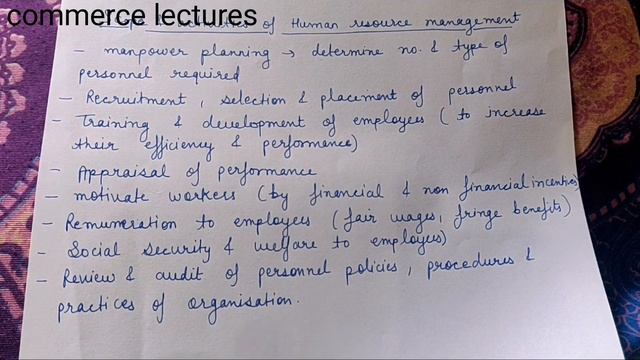 commerce lectures
of Human resource management
- manpower planning → determine no. & type of
personnel required
- Recruitment, selection & placement of personnel
- Training & development of employees (to increase
their efficiency & performance)
- Appraisal of performance
- motivate workers (by financial & non financial incentives)
- Remuneration to employees (fair wages, fringe benefits)
- Social security & welfare to employees)
- Review & audit of personnel policies, procedures &
practices of organisation.